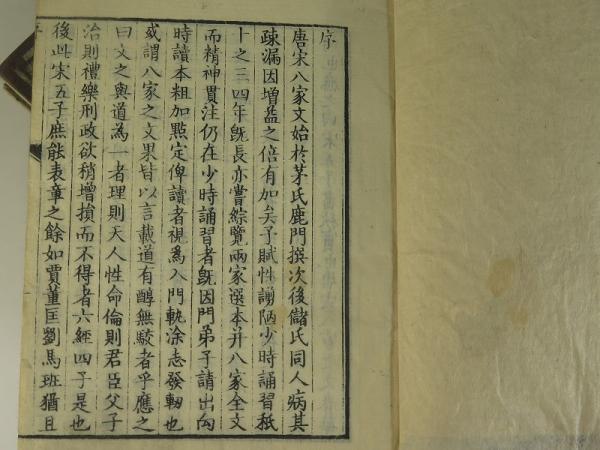 序
唐宋八家文始於茅氏鹿門撰次後儲氏同人病其
疎漏因增益之倍有加矣予賦性謭陋少時誦習秖
十之三四年既長亦嘗綜覽兩家選本并八家全文
而精神貫注仍在少時誦習者既因門弟子請出向
時讀本粗加點定俾讀者視為入門軌涂志發軔也
或謂八家之文果皆以言載道有醇無駁者乎應之
曰文之與道為一者理則天人性命倫則君臣父子
治則禮樂刑政欲稍增損而不得者六經四子是也
後此宋五子庶能表章之餘如賈董匡劉馬班猶且